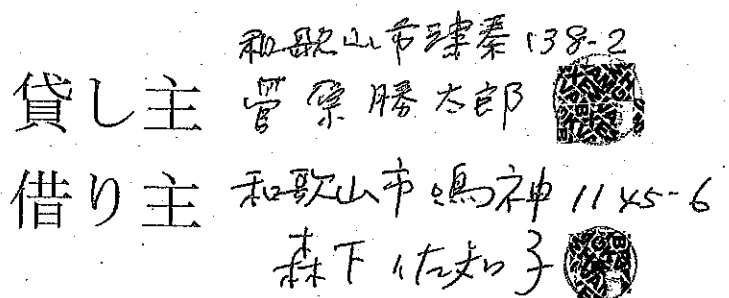 和歌山市津秦138-2
貸し主 菅原勝太郎
借り主 和歌山市鳴神1145-6
森下佐知子